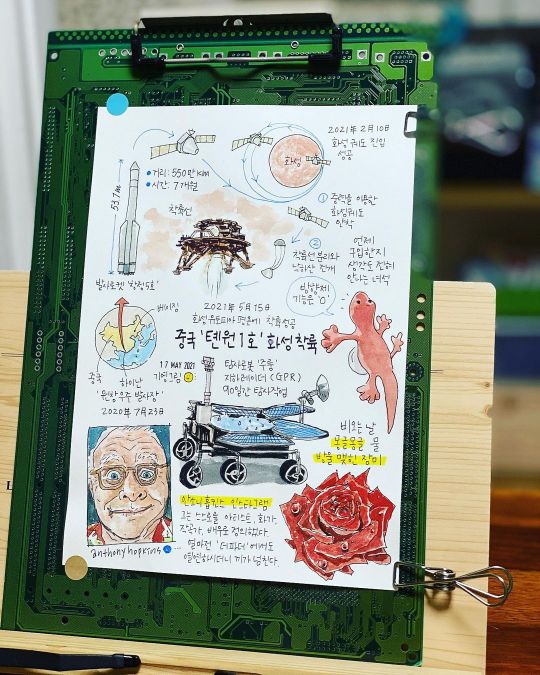 2021年 2月 10日
화성 궤도 진입
성공
화성
거리: 550만 Km
시간: 7개월
53.7m
착륙선
① 중력을 이용한
화성궤도
안착
② 착륙선 분리와
낙하산 전개
언제
구입한지
생각도 전혀
안나는 녀석
방향제
기능은 'O'
발사로켓 '창정5호'
2021年 5月 15日
화성 유토피아 평원에 착륙성공
중국 '톈원 1호' 화성착륙
베이징
중국 하이난
'원창우주발사장'
2020年 7月 23日
17 MAY 2021
기멍그림
탐사로봇 '주룽'
지하레이더 (GPR)
90일간 탐사작업
비오는 날
몽글몽글 물
방울 맺힌 장미
안소니홉킨스 인스타그램
그는 스스로를 아티스트, 화가,
작곡가, 배우로 정의했다.
얼마전 '더파더'에서도
열연하시더니 끼가 넘친다.
@anthonyhopkins